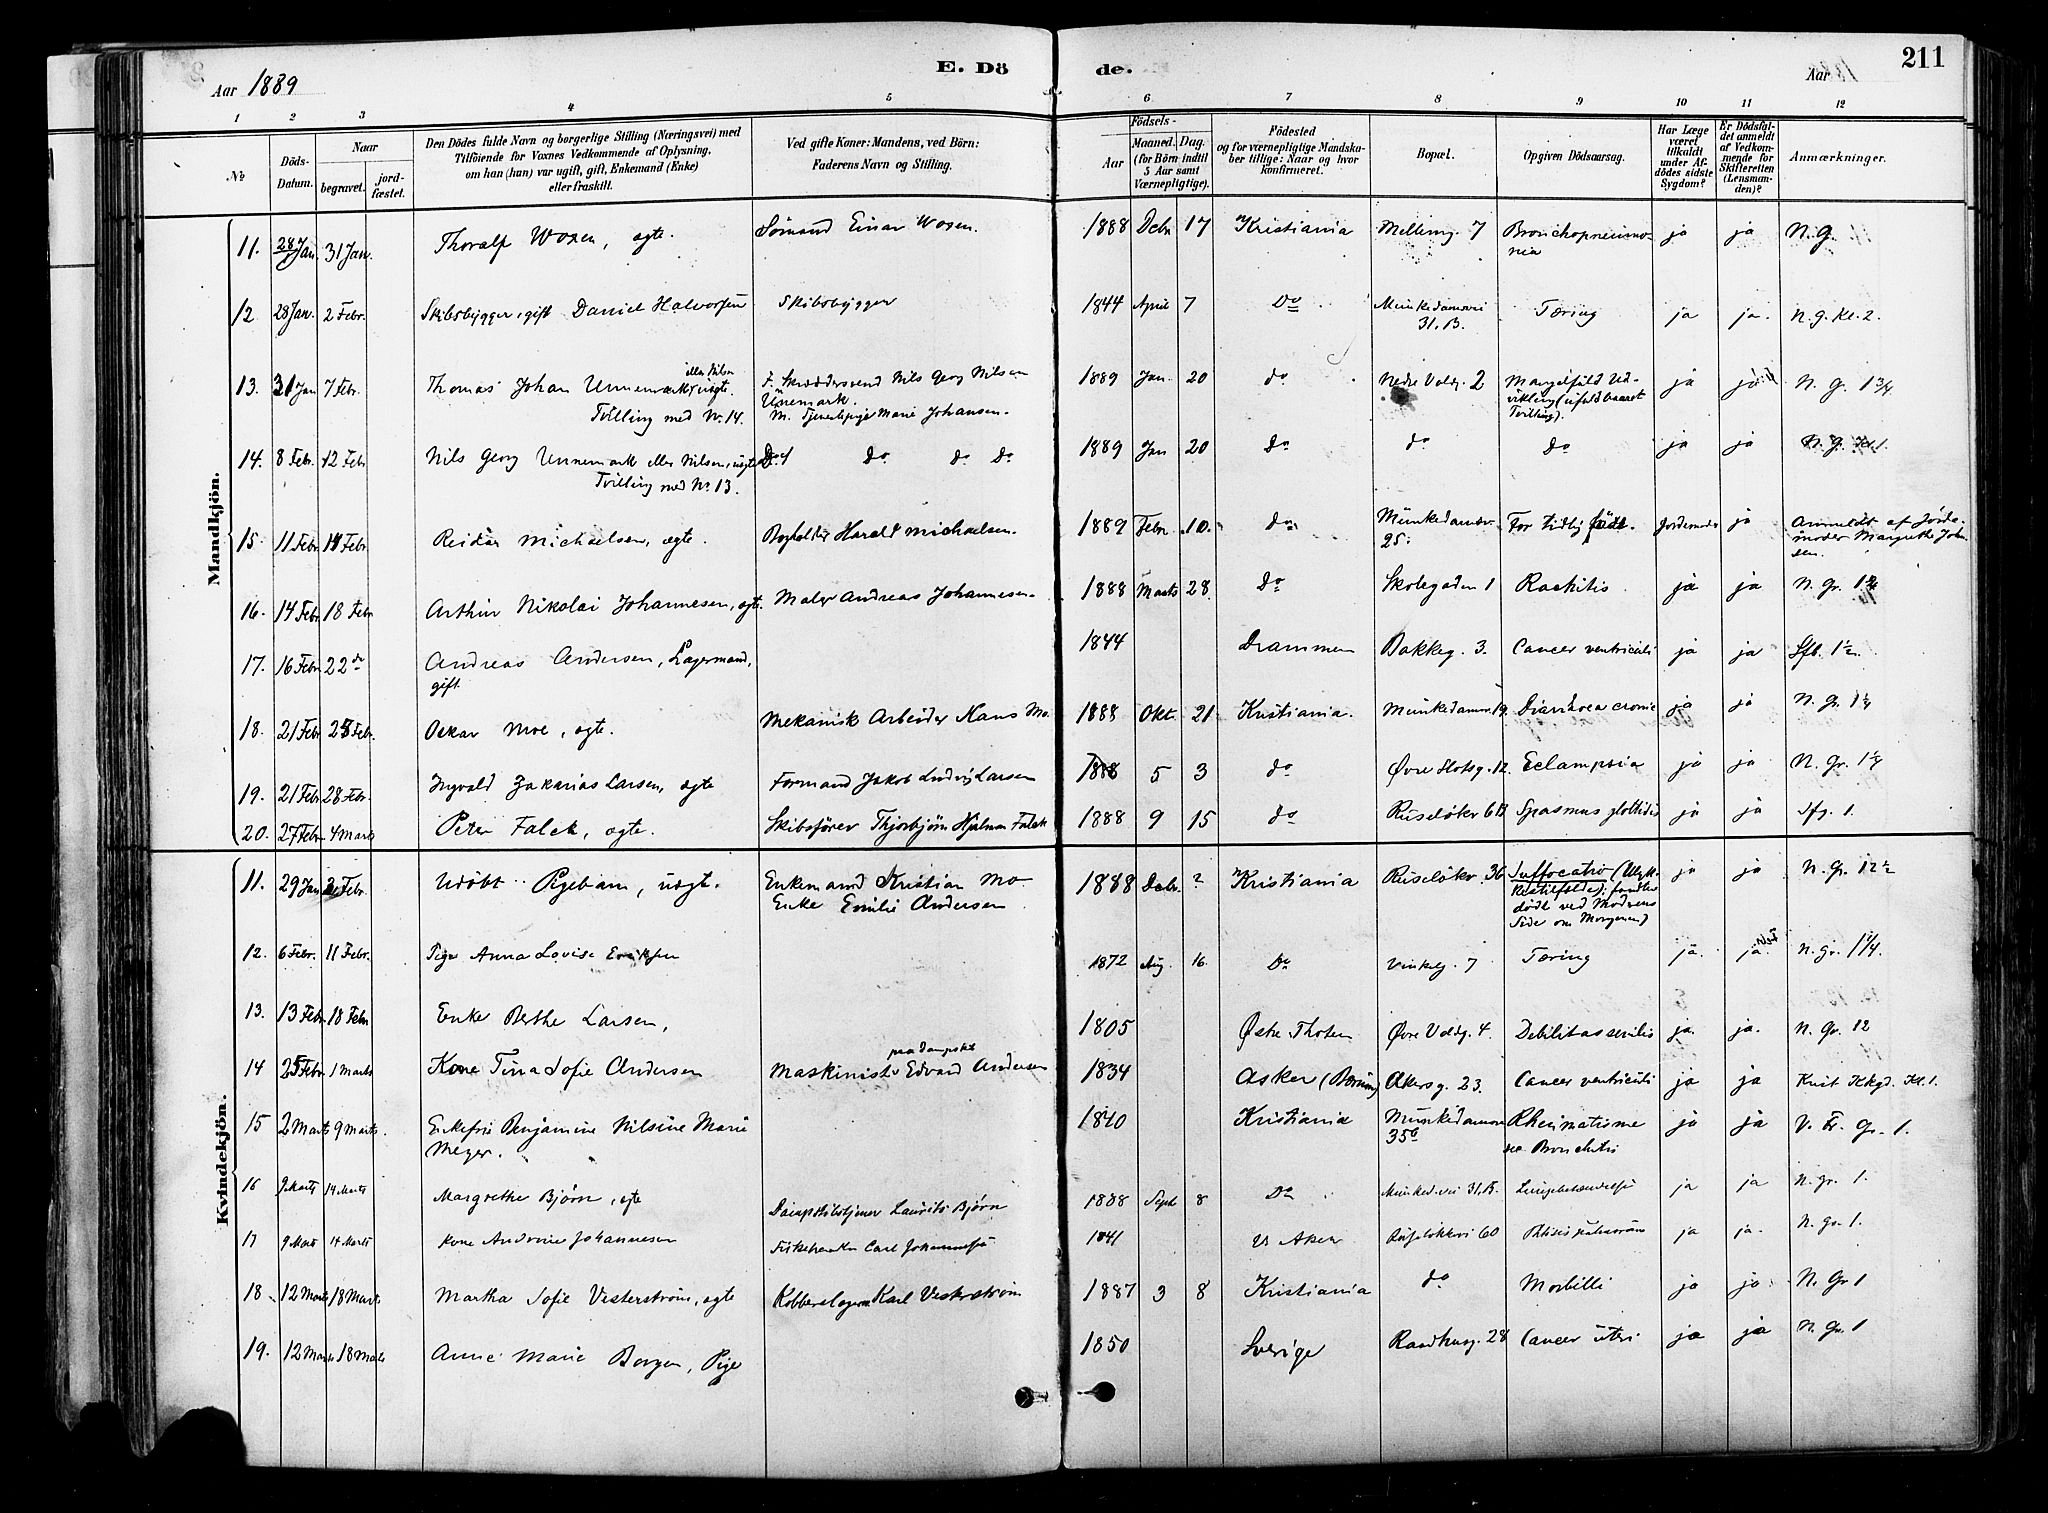 Aar 1889
E. Dö
de.
Aar
211
1 2 3 4 5 6 7 8 9 10 11 12
No
Döds-Datum.
Naar
begravet. jordfæstet.
Den Dödes fulde Navn og borgerlige Stilling (Næringsvei) med
Tilföiende for Voxnes Vedkommende af Oplysning,
om han (hun) var ugift, gift, Enkemand (Enke)
eller fraskilt.
Ved gifte Koner: Mandens, ved Börn:
Faderens Navn og Stilling.
Födsels-
Aar
Maaned. Dag.
(for Börn indtil
5 Aar samt
Værnepligtige).
Födested
og for værnepligtige Mandskaber tillige: Naar og hvor
konfirmeret.
Bopæl.
Opgiven Dödsaarsag.
Har Læge
været
tilkaldt
under Afdödes sidste
Sygdom?
Er Dödsfaldet anmeldt
af Vedkommende for
Skifteretten
(Lensmanden)?
Anmærkninger.
Mandkjön.
11. 28 Jan. 31 Jan. Thoralf Woxen, ægte. Sömand Einar Woxen. 1888 Decbr 17 Kristiania Melling. 7 Bronchopneumonia ja ja N. G.
12 28 Jan. 2 Febr. Skibsbygger, gift Daniel Halvorsen Skibsbygger 1844 April 7 Do Munkedamsvei 31. B. Tæring ja ja. N. G. Kl. 2.
13. 31 Jan 7 Febr. Thomas Johan Unnemark, uægte. eller Nilsen
Tvilling med No. 14.
F. Skræddersvend Nils Georg Nilsen
Unemark.
M. Tjenestepige Marie Johansen.
1889 Jan. 20 do Nedre Voldg. 2 Mangelfuld Udvikling (ufuldbaaret
Tvilling). ja ja N. G. 1 3/4
14. 8 Febr. 12 Febr Nils Georg Unnemark eller Nilsen, uægte
Tvilling med No. 13.
Do do do Do 1889 Jan 20 Do do Do ja ja N. G. Kl 1.
15. 11 Febr 18 Febr Reidar Michaelsen, ægte. Bogholder Harald Michaelsen. 1889 Febr. 10. do Munkedamsv. 25. For tidlig født. Jordemoder ja Anmeldt af Jordemoder Margrethe Johnsen.
16. 14 Febr. 18 Febr Arthur Nikolai Johannesen, ægte. Maler Andreas Johannesen. 1888 Marts 28. Do Skolegaden 1 Rachitis. ja ja N. Gr.
17. 16 Febr 22 do Andreas Andersen, Lagermand,
gift. 1844 Drammen Bakkeg. 3. Cancer ventriculi ja ja 1 1/2.
18. 21 Febr Febr. Oskar Moe, ægte. Mekanisk Arbeider Hans Mo. 1888 Okt. 21 Kristiania. Munkedamsv. 19. Diarrhoea cronic ja ja N. Gr.
19. 21 Febr 28 Febr. Ingvald Zakarias Larsen, ægte Formand Jakob Ludvig Larsen 1888 5 3 do Øvre Slotsg. 12. Eclampsia ja ja N. Gr.
20. 27 Febr. 4 Marts Peter Falck, ægte. Skibsfører Thorbjørn Hjalmar Falck 1888 9 15 do Ruseløkv 6 B Spasmus glottidis ja ja 1.
Kvindekjön.
11. 29 Jan Febr. Udöbt Pigebarn, uægt. Enkemand Kristian Mo.
Enke Emilie Andersen 1888 Decbr. ? Kristiania Ruseløkv. 36 Suffocatio (Ulykkestilfælde); fundet
dødt ved Moderens
Side om Morgenen) ja ja N. Gr. 12 1/2
12. 6 Febr. 11 Febr. Pige Anna Lovise Eriksen 1872 Aug. 16. Do Vinkelg. 7 Tæring ja. ja. N. Gr. 1 1/4.
13. 13 Febr 18 Febr Enke Berthe Larsen, 1805 Østre Thoten Øvre Voldg. 4. Debilitas senilis ja. ja. N. Gr. 12
14 25 Febr. 1 Marts Kone Tina Sofie Andersen Maskinist paa Dampskib Edvard Andersen 1834 Asker (Bærum) Akersg. 23. Cancer ventriculi ja ja Krist Kkgd. Kl. 1.
15 2 Marts 9 Marts. Enkefru Benjamine Nilsine Marie
Meyer. 1840 Kristiania Munkedamsv 35 b Rheumatisme
Bronchitis ja ja V. Fr. Gr. 1.
16 9 Marts 14 Marts Margrethe Bjørn, ægte Dampskibstjener Laurits Bjørn 1888 Sept 8 Do Munked. vei 31, B. Lungebetændelse ja ja N. Gr. 1.
17 9 Marts 14 Marts Kone Andrine Johannesen Fiskehandler Carl Johannesen 1841 V. Aker Ruseløkvei 60 Phtisis pulmonum ja ja. N. Gr. 1.
18 12 Marts 18 Marts Martha Sofie Vesterström, ægte Kobberslager Karl Vesterström 1887 3 8 Kristiania do Morbilli ja ja N. Gr 1
19. 12 Marts 18 Marts Anne Marie Borgen, Pige 1850 Sverige Raadhusg. 28 Cancer uteri ja ja N. Gr. 1